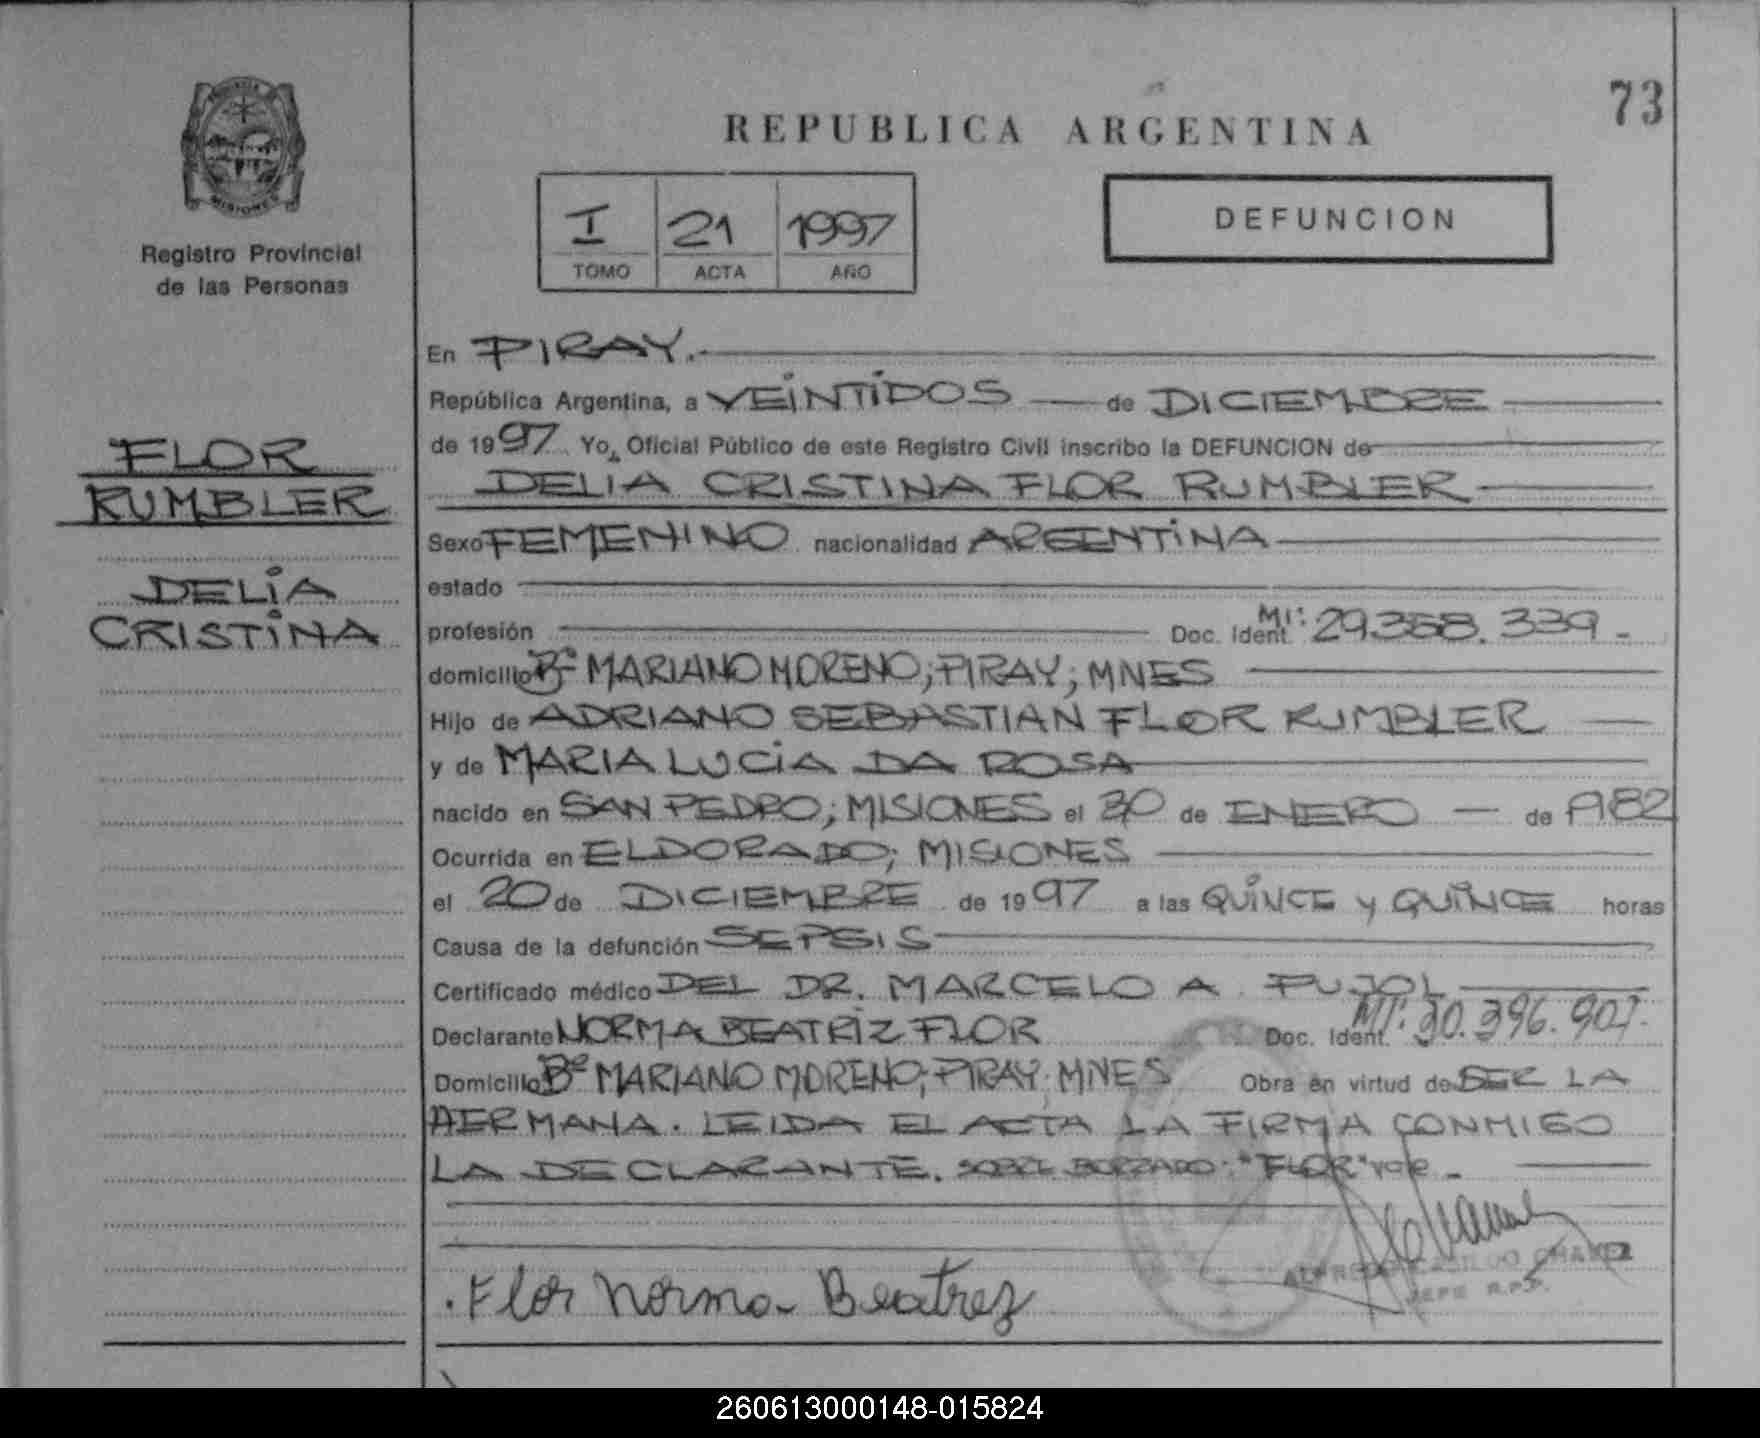 73
REPUBLICA ARGENTINA
I 21 1997
TOMO ACTA AÑO
DEFUNCION
MISIONES
Registro Provincial
de las Personas
FLOR
RUMBLER
DELIA
CRISTINA
En PIRAY.
República Argentina, a VEINTIDOS de DICIEMBRE
de 1997 Yo, Oficial Público de este Registro Civil inscribo la DEFUNCION de
DELIA CRISTINA FLOR RUMBLER
Sexo FEMENINO nacionalidad ARGENTINA
estado
profesión Doc. Ident. MI: 29.358.339.-
domicilio Bº MARIANO MORENO; PIRAY; MNES
Hijo de ADRIANO SEBASTIAN FLOR RUMBLER
y de MARIA LUCIA DA ROSA
nacido en SAN PEDRO; MISIONES el 30 de ENERO de 1982
Ocurrida en ELDORADO; MISIONES
el 20 de DICIEMBRE de 1997 a las QUINCE y QUINCE horas
Causa de la defunción SEPSIS
Certificado médico DEL DR. MARCELO A. PUJOL
Declarante NORMA BEATRIZ FLOR Doc. Ident. MI: 30.396.907.
Domicilio Bº MARIANO MORENO; PIRAY; MNES Obra en virtud de SER LA
HERMANA. LEIDA EL ACTA LA FIRMA CONMIGO
LA DECLARANTE. SOBRE BORRADO: "FLOR" VALE.-
.Flor Norma Beatrez
ALFREDO CHAVEZ
JEFE R.P.P.
260613000148-015824